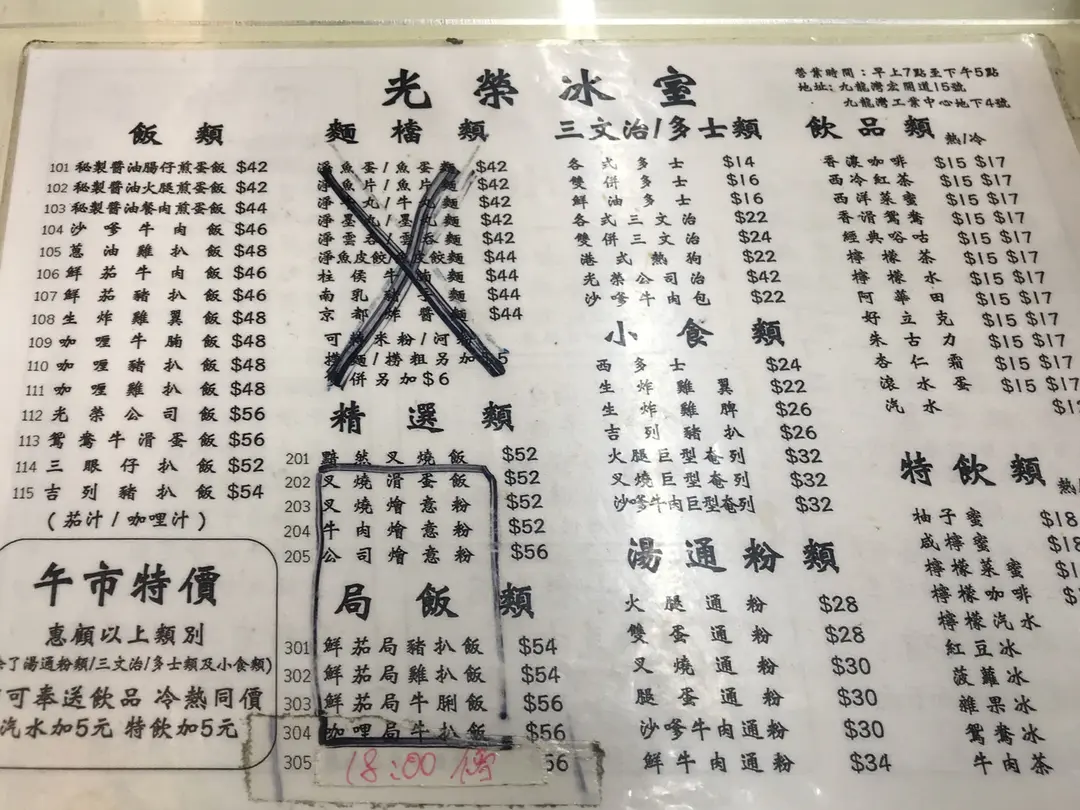 光榮冰室
營業時間：早上7點至下午5點
地址：九龍灣宏開道15號
九龍灣工業中心地下4號
飯類
101 秘製醬油腸仔煎蛋飯 $42
102 秘製醬油火腿煎蛋飯 $42
103 秘製醬油餐肉煎蛋飯 $44
104 沙嗲牛肉飯 $46
105 蔥油雞扒飯 $48
106 鮮茄牛肉飯 $46
107 鮮茄豬扒飯 $46
108 生炸雞翼飯 $48
109 咖喱牛腩飯 $48
110 咖喱豬扒飯 $48
111 咖喱雞扒飯 $48
112 光榮公司飯 $56
113 鴛鴦牛滑蛋飯 $56
114 三眼仔扒飯 $52
115 吉列豬扒飯 $54
(茄汁/咖哩汁)
午市特價
惠顧以上類別
了湯通粉類/三文治/多士類及小食類)
可奉送飲品 冷熱同價
汽水加5元 特飲加5元
麵檔類
淨魚蛋/魚蛋麵 $42
淨魚片/魚片麵 $42
淨牛丸/牛丸麵 $42
淨墨丸/墨丸麵 $42
淨雲吞/雲吞麵 $42
淨魚皮餃/魚皮餃麵 $44
柱侯牛腩麵 $44
南乳豬手麵 $44
京都炸醬麵 $44
可轉米粉/河粉
撈麵/撈粗另加$5
雙併另加$6
精選類
201 黯然叉燒飯 $52
202 叉燒滑蛋飯 $52
203 叉燒燴意粉 $52
204 牛肉燴意粉 $52
205 公司燴意粉 $56
局飯類
301 鮮茄局豬扒飯 $54
302 鮮茄局雞扒飯 $54
303 鮮茄局牛脷飯 $56
304 咖哩局牛扒飯 $56
305 56
18:00
三文治/多士類
各式多士 $14
雙併多士 $16
鮮油多士 $16
各式三文治 $22
雙併三文治 $24
港式熱狗 $22
光榮公司治 $42
沙嗲牛肉包 $22
小食類
西多士 $24
生炸雞翼 $22
生炸雞脾 $26
吉列豬扒 $26
火腿巨型奄列 $32
叉燒巨型奄列 $32
沙嗲牛肉巨型奄列 $32
湯通粉類
火腿通粉 $28
雙蛋通粉 $28
叉燒通粉 $30
腿蛋通粉 $30
沙嗲牛肉通粉 $30
鮮牛肉通粉 $34
飲品類 熱/冷
香濃咖啡 $15 $17
西冷紅茶 $15 $17
西洋菜蜜 $15 $17
香滑鴛鴦 $15 $17
經典唂咕 $15 $17
檸檬茶 $15 $17
檸檬水 $15 $17
阿華田 $15 $17
好立克 $15 $17
朱古力 $15 $17
杏仁霜 $15 $17
滾水蛋 $15 $17
汽水
特飲類 熱/
柚子蜜 $18
咸檸蜜 $18
檸檬菜蜜
檸檬咖啡
檸檬汽水
紅豆冰
菠蘿冰
雜果冰
鴛鴦冰
牛肉茶